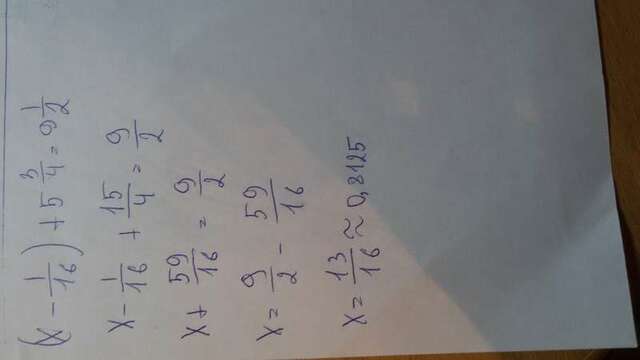 (x - 1/16) + 5 3/4 = 9 1/2
x - 1/16 + 15/4 = 9/2
x + 59/16 = 9/2
x = 9/2 - 59/16
x = 13/16 ≈ 0,8125